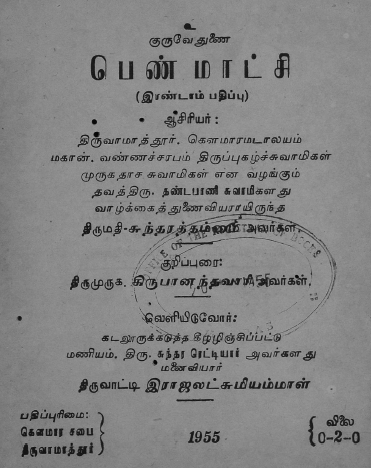 உ
குருவே துணை
பெண் மாட்சி
(இரண்டாம் பதிப்பு)
ஆசிரியர் :
திருவாமாத்தூர். கௌமாரமடாலயம்
மகான். வண்ணச்சரபம் திருப்புகழ்ச்சுவாமிகள்
முருகதாச சுவாமிகள் என வழங்கும்
தவத்திரு. தண்டபாணி சுவாமிகளது
வாழ்க்கைத்துணைவியராயிருந்த
திருமதி-சுந்தரத்தம்மாள் அவர்கள்.
குறிப்புரை:
திருமுருக. கிருபானந்தவாரி அவர்கள்.
வெளியிடுவோர்:
கடலூருக்கடுத்த கீழ்அழிஞ்சிப்பட்டு
மணியம், திரு. சுந்தர ரெட்டியார் அவர்களது
மனைவியார்
திருவாட்டி இராஜலட்சுமியம்மாள்
பதிப்புரிமை:
கௌமார சபை
திருவாமாத்தூர்
1955
விலை
0-2-0